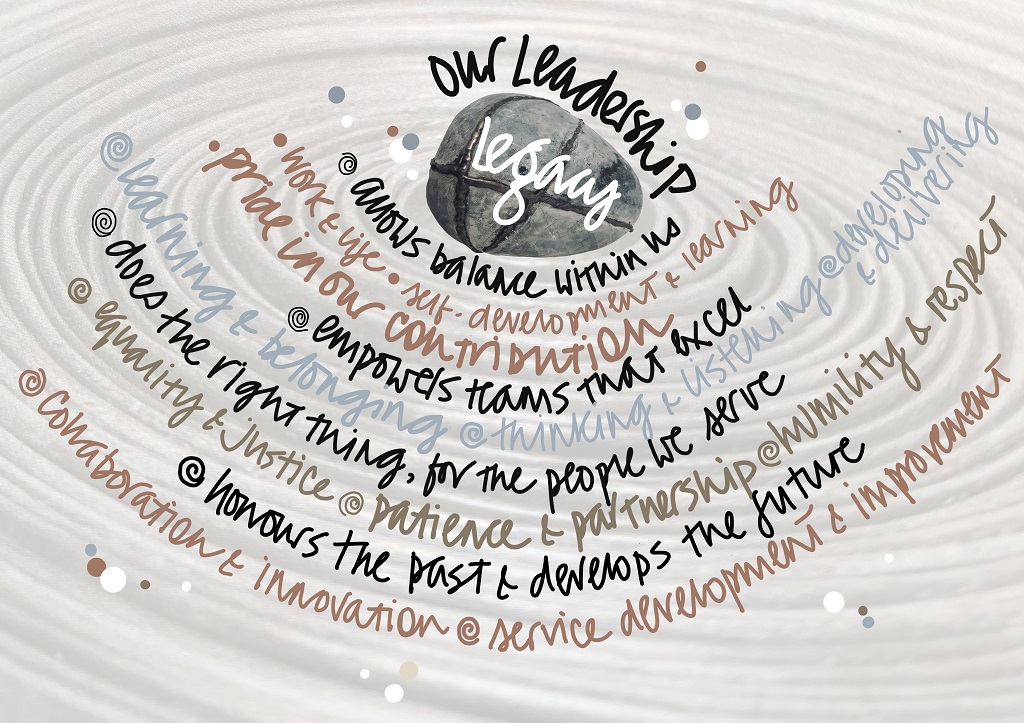 Our Leadership
Legacy
allows balance within us
work & life • self-development & learning
pride in our contribution
empowers teams that excel
learning & belonging @ thinking & listening @ developing & delivering
does the right thing, for the people we serve
equality & justice @ patience & partnership @ humility & respect
honours the past & develops the future
Collaboration & innovation @ service development & improvement